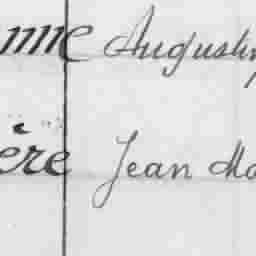 mme Augustin
ère Jean Ma